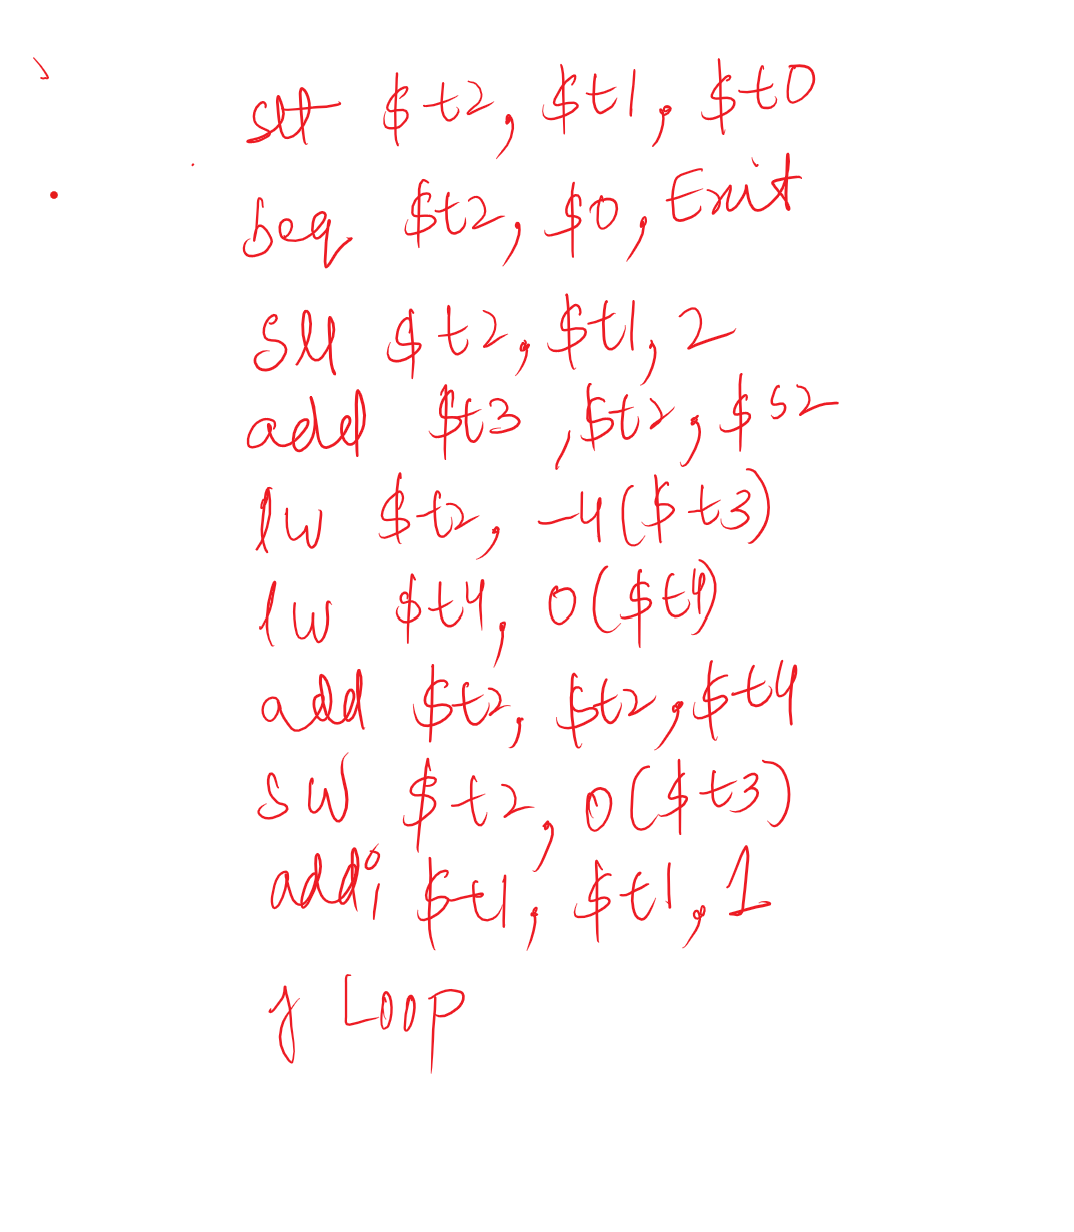 slt $t2, $t1, $t0
beq $t2, $0, Exit
sll $t2, $t1, 2
add $t3, $t2, $s2
lw $t2, -4($t3)
lw $t4, 0($t4)
add $t2, $t2, $t4
sw $t2, 0($t3)
addi $t1, $t1, 1
j Loop